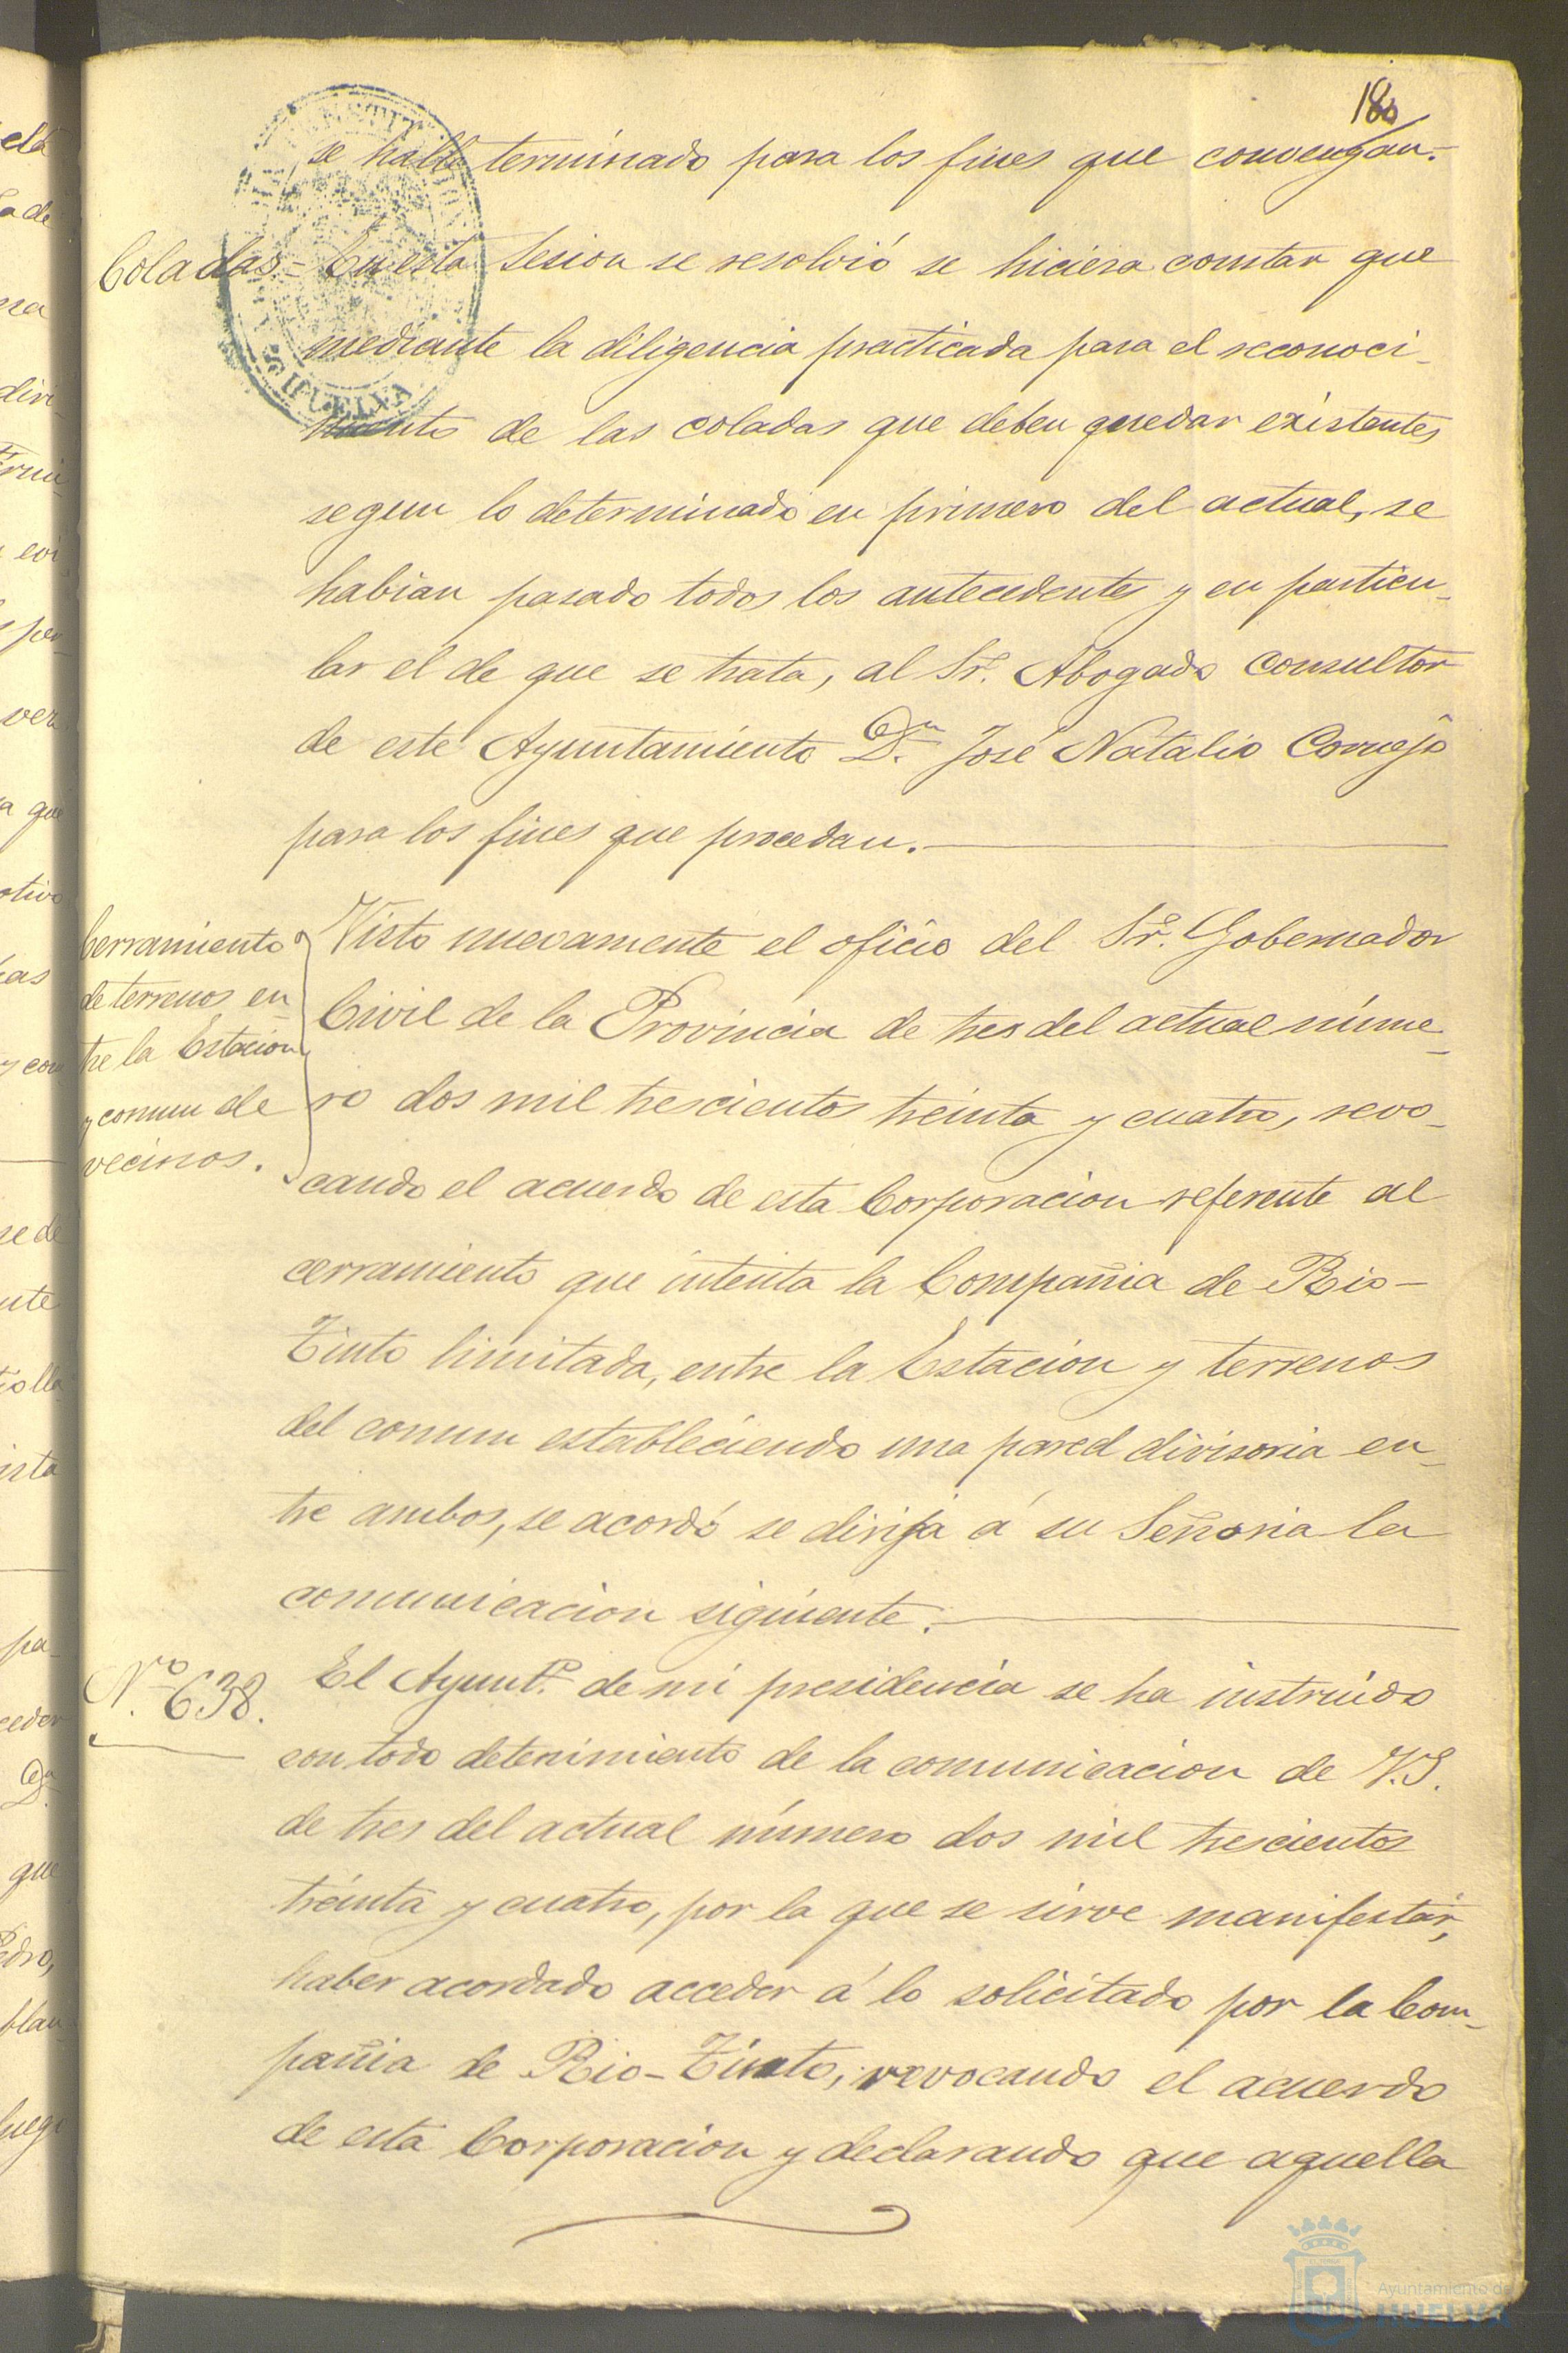 180
se halle terminado para los fines que convengan.=
Coladas= En esta Sesion se resolvió se hiciera constar que
mediante la diligencia practicada para el reconoci-
miento de las coladas que deben quedar existentes
segun lo determinado en primero del actual, se
habian pasado todos los antecedentes y en particu-
lar el de que se trata, al Sr. Abogado Consultor
de este Ayuntamiento Dn. José Natalio Cornejo
para los fines que procedan.
Cerramiento
de terrenos en-
tre la Estacion
y comun de
vecinos.
Visto nuevamente el oficio del Sr. Gobernador
Civil de la Provincia de tres del actual núme-
ro dos mil trescientos treinta y cuatro, revo-
cando el acuerdo de esta Corporacion referente al
cerramiento que intenta la Compañia de Rio-
Tinto limitada, entre la Estacion y terrenos
del comun estableciendo una pared divisoria en-
tre ambos, se acordó se dirija á su Señoria la
comunicacion siguiente.
No. 638.
El Ayunto. de mi presidencia se ha instruido
con todo detenimiento de la comunicacion de V.S.
de tres del actual número dos mil trescientos
treinta y cuatro, por la que se sirve manifestar,
haber acordado acceder á lo solicitado por la Com-
pañia de Rio-Tinto, revocando el acuerdo
de esta Corporacion y declarando que aquella
HUELVA
Ayuntamiento de
HUELVA